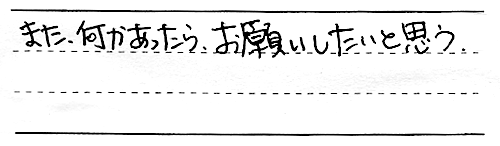 また、何かあったら、お願いしたいと思う.